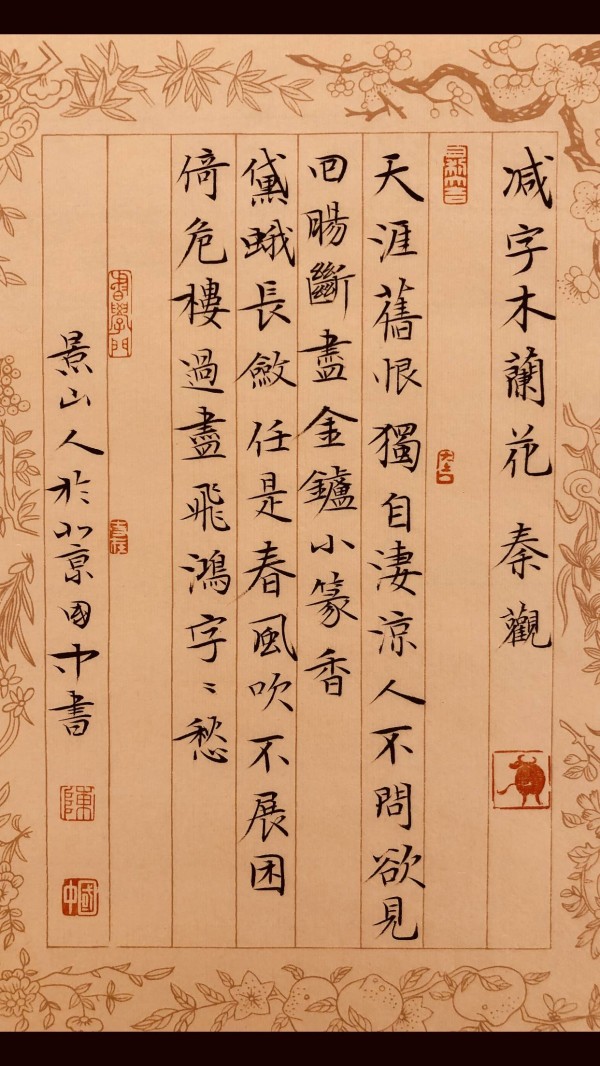 减字木蘭花 秦觀
天涯舊恨獨自淒涼人不問欲見
回腸斷盡金鑪小篆香
黛蛾長斂任是春風吹不展困
倚危樓過盡飛鴻字〻愁
書學門
景山人於北京國中書
陳
國中